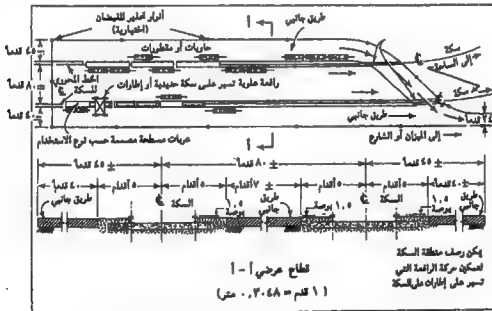 أنوار تحذير للفيضان
(اختيارية)
أ
حاويات أو مقطورات
طريق جانبي
٤٥ قدماً
± ٨٠ قدماً
٤٠ قدماً
الخط المحوري
للسكة
رافعة علوية تسير على سكة حديدية أو إطارات
سكة
إلى الساحة
سكة
٢٤ قدماً
طريق جانبي
إلى الميزان أو الشارع
أ
عربات مسطحة مصممة حسب نوع الاستخدام
± ٤٥ قدماً
± ٨٠ قدماً
± ٤٥ قدماً
± ٤٠ قدماً
٥ أقدام
٥ أقدام
± ٧ أقدام
± ٥ أقدام
٥ أقدام
± ٤٠ قدماً
طريق جانبي
السكة
١,٥ بوصة
طريق جانبي
١,٥ بوصة
السكة
١,٥ بوصة
طريق جانبي
قطاع عرضي أ - أ
(١ قدم = ٠,٣٠٤٨ متر)
يمكن رصف منطقة السكة
لتمكين حركة الرافعة التي
تسير على إطارات على السكة